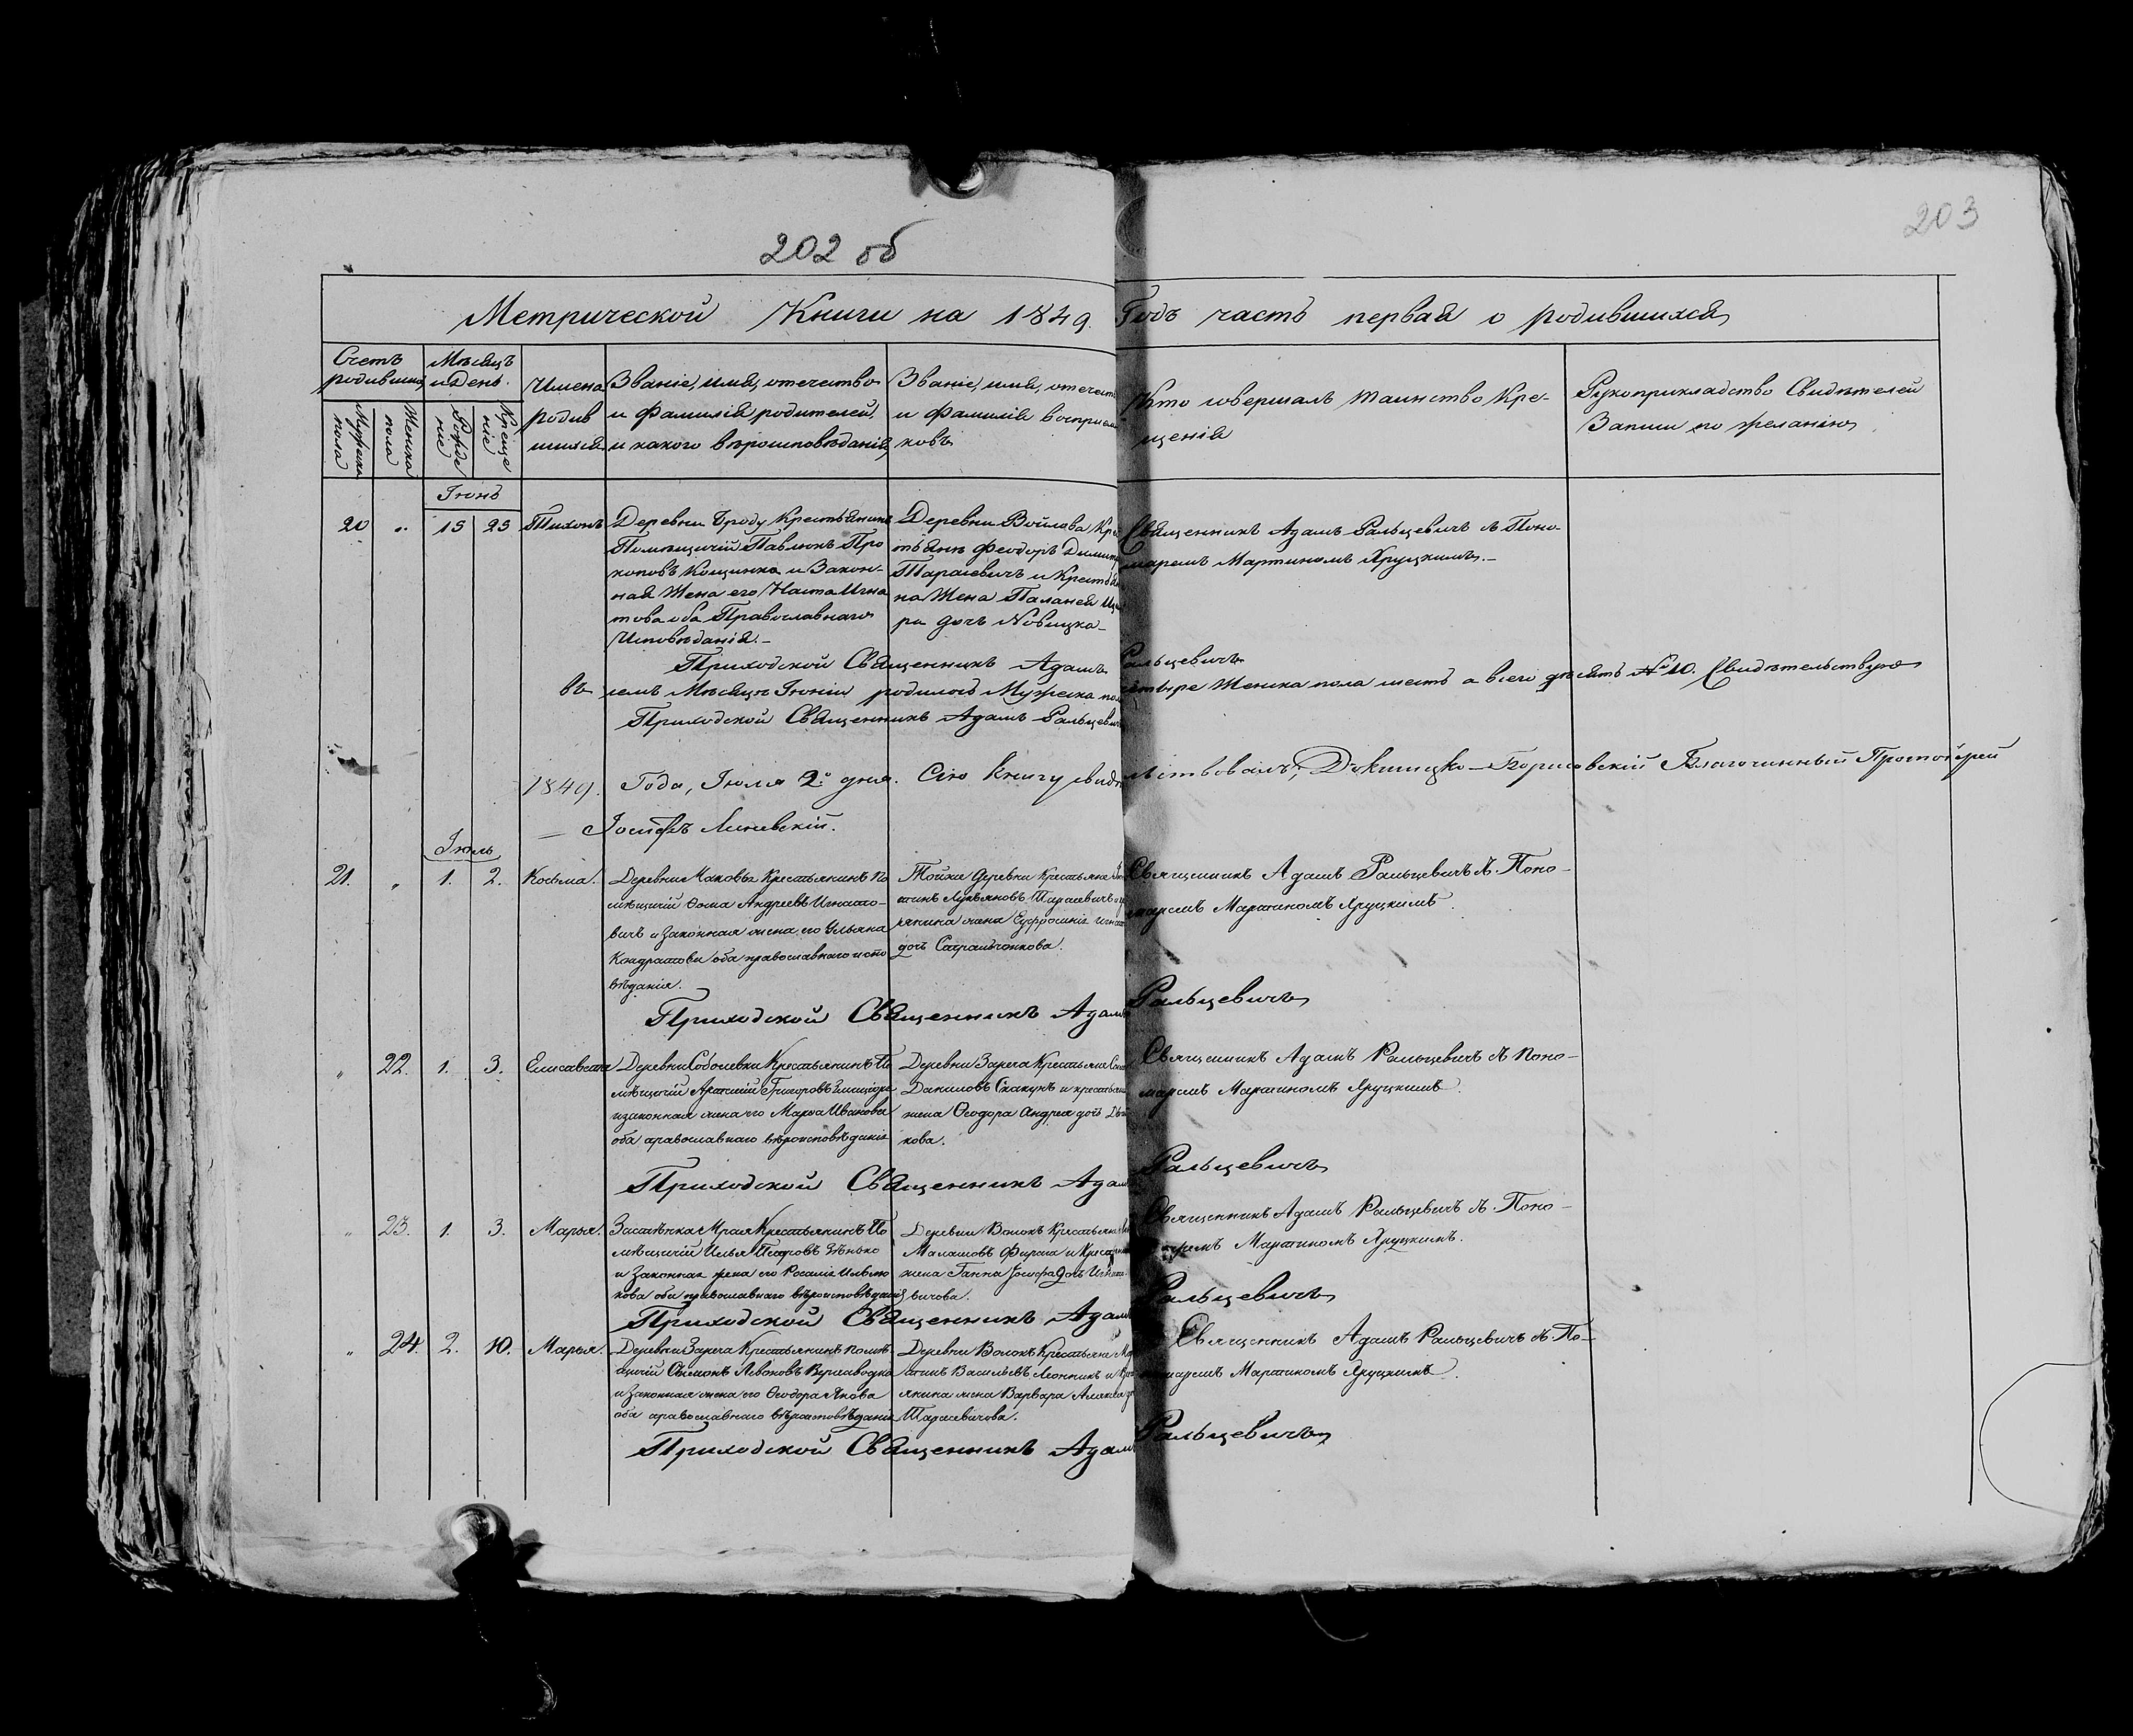 202 об
203
Метрической Книги на 1849. Годъ часть первая о родившихся
Счетъ родившихся
Мѣсяцъ и День.
Мужеска пола
Женска пола
Рожде ніе
Креще ніе
Имена родив шихся
Званіе, имя, отечество
и фамилія родителей,
и какого вѣроисповѣданія
Званіе, имя, отечест
и фамилія воспріем
ковъ
Кто совершалъ таинство Кре-
щенія
Рукоприкладство Свидѣтелей
Записи по желанію
Іюнь
20 " 15 25 Тихонъ
Деревни Броду Крестьянинъ
Помѣщичій Павлюкъ Про
коповъ Кощинка и Закон-
ная Жена его Наста Игна
това оба Православнаго
Исповѣданія.-
Деревни Войлова Кре
тьянъ Феодоръ Димитр
Тарасевичъ и Крестья
на Жена Паланея
ра дочь Новицка-
Священникъ Адамъ Ральцевичъ съ Поно-
маремъ Мартиномъ Яруцкимъ.-
Приходской Священникъ Адамъ Ральцевичъ
въ семъ Мѣсяцѣ Іюніи родилось Мужеска пола четыре Женска пола шесть а всего десять № 10. Свидѣтельствую
Приходской Священникъ Адамъ Ральцевичъ
1849. Года, Іюля 2 дня. Сію книгу свидѣтельствовалъ, Докшицко-Борисовскій Благочинный Протоіерей
Іосифъ Линевскій.
Іюль
21. " 1. 2. Косьма.
Деревни Маковья Крестьянинъ По
мѣщичій Ѳома Андреевъ Игнато-
вичъ и Законная жена его Ульяна
Кондратова оба православнаго испо
вѣданія.
Тойже деревни Крестьяне
тинъ Лукьяновъ Тарасевичъ и
янина жена Ефросинія Игнат
дочь
Священникъ Адамъ Ральцевичъ съ Поно-
маремъ Мартиномъ Яруцкимъ.
Приходской Священникъ Адамъ Ральцевичъ
" 22. 1. 3. Елисавета
Деревни Соболевки Крестьянинъ По
мѣщичій Артемій Григоровъ
и законная жена его Марѳа Иванова
оба православнаго вѣроисповѣданія
Деревни Заречя Крестьяне
Даниловъ Скакунъ и крестьян
жена Ѳеодора Андрея дочь
кова.
Священникъ Адамъ Ральцевичъ съ Поно-
маремъ Мартиномъ Яруцкимъ.
Приходской Священникъ Адамъ Ральцевичъ
" 23. 1. 3. Марья.
Застѣнка Мрая Крестьянинъ По
мѣщичій Илья Петровъ Зѣнько
и Законная жена его Розалія Илью
кова оба православнаго вѣроисповѣданія
Деревни Волокъ Крестьяне
Малашовъ Фираго и Крестьян
жена Ганна Іосифа дочь Игнато
вичова.
Священникъ Адамъ Ральцевичъ съ Поно-
маремъ Мартиномъ Яруцкимъ.
Приходской Священникъ Адамъ Ральцевичъ
" 24. 2. 10. Марья.
Деревни Заречя Крестьянинъ помѣ
щичій Сымонъ Левоновъ Верлаводка
и Законная жена его Ѳеодора Якова
оба православнаго вѣроисповѣданія
Деревни Волокъ Крестьяне Мар
тинъ Васильевъ Леонникъ и Крес
янина жена Варвара
Тарасевичова.
Священникъ Адамъ Ральцевичъ съ По-
номаремъ Мартиномъ Яруцкимъ.
Приходской Священникъ Адамъ Ральцевичъ